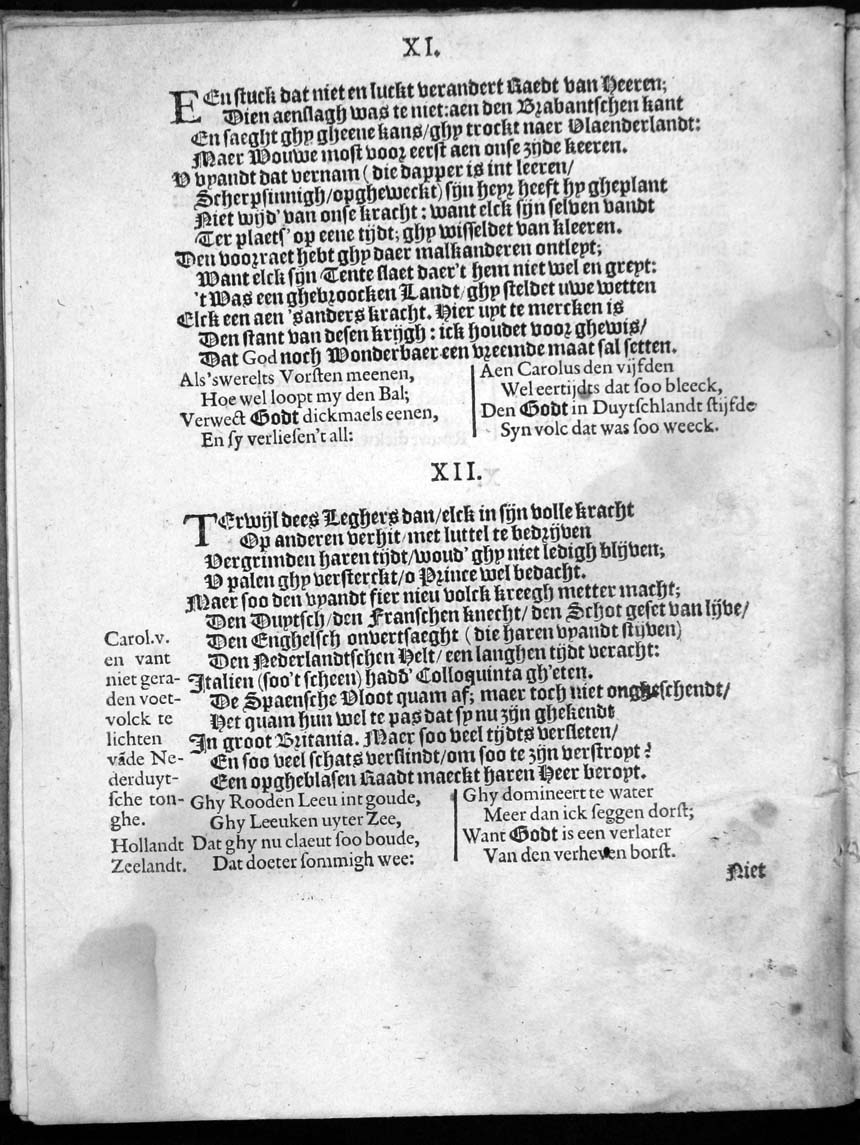 XI.
EEn stuck dat niet en luckt verandert Raedt van Heeren;
Dien aenslagh was te niet: aen den Brabantschen kant
En saeght ghy gheene kans/ghy trockt naer Vlaenderlandt:
Maer Wouwe most voor eerst aen onse zijde keeren.
V vyandt dat vernam (die dapper is int leeren/
Scherpsinnigh/opgheweckt) sijn heyr heeft hy gheplant
Niet wijd' van onse kracht: want elck sijn selven vandt
Ter plaets' op eene tijdt; ghy wisseldet van kleeren.
Den voorraet hebt ghy daer malkanderen ontleyt;
Want elck sijn Tente slaet daer't hem niet wel en greyt:
't Was een ghebroocken Landt/ghy steldet uwe wetten
Elck een aen 'sanders kracht. Hier uyt te mercken is
Den stant van desen krijgh: ick houdet voor ghewis/
Dat God noch Wonderbaer een vreemde maat sal setten.
Als 'swerelts Vorsten meenen,
Hoe wel loopt my den Bal;
Verwect Godt dickmaels eenen,
En sy verliesen't all:
Aen Carolus den vijfden
Wel eertijdts dat soo bleeck,
Den Godt in Duytschlandt stijfde
Syn volc dat was soo weeck.
XII.
TErwijl dees Leghers dan/elck in sijn volle kracht
Op anderen verhit/met luttel te bedrijven
Vergrimden haren tijdt/woud' ghy niet ledigh blijven;
V palen ghy versterckt/o Prince wel bedacht.
Maer soo den vyandt fier nieu volck kreegh metter macht;
Den Duytsch/den Franschen knecht/den Schot geset van lijve/
Den Enghelsch onvertsaeght (die haren vyandt stijven)
Den Nederlandtschen Helt/een langhen tijdt veracht:
Italien (soo't scheen) hadd' Colloquinta gh'eten.
De Spaensche Vloot quam af; maer toch niet ongheschendt/
Het quam hun wel te pas dat sy nu zijn ghekendt
In groot Britania. Maer soo veel tijdts versleten/
En soo veel schats verslindt/om soo te zijn verstropt?
Een opgheblasen Raadt maeckt haren Heer beropt.
Carol.v.
en vant
niet gera-
den voet-
volck te
lichten
vāde Ne-
derduyt-
sche ton-
ghe.
Hollandt
Zeelandt.
Ghy Rooden Leeu int goude,
Ghy Leeuken uyter Zee,
Dat ghy nu claeut soo boude,
Dat doeter sommigh wee:
Ghy domineert te water
Meer dan ick seggen dorst;
Want Godt is een verlater
Van den verheven borst.
Niet